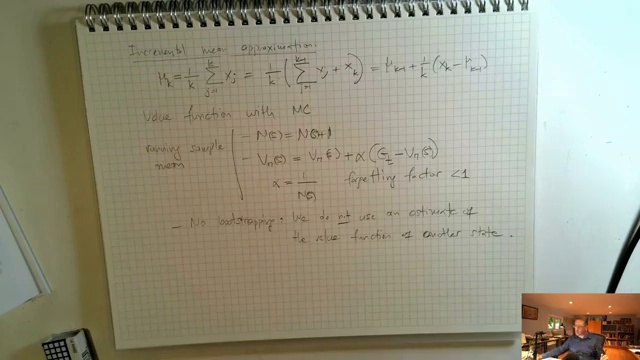 Incremental mean approximation:
μ_k = 1/k Σ_{j=1}^{k} x_j = 1/k ( Σ_{j=1}^{k-1} x_j + x_k ) = μ_{k-1} + 1/k (x_k - μ_{k-1})
Value function with MC
running sample mean
- N(s) = N(s)+1
- V_π(s) = V_π(s) + α (G_t - V_π(s))
α = 1/N(s) forgetting factor <1
- No bootstrapping: We do not use an estimate of
the value function of another state.